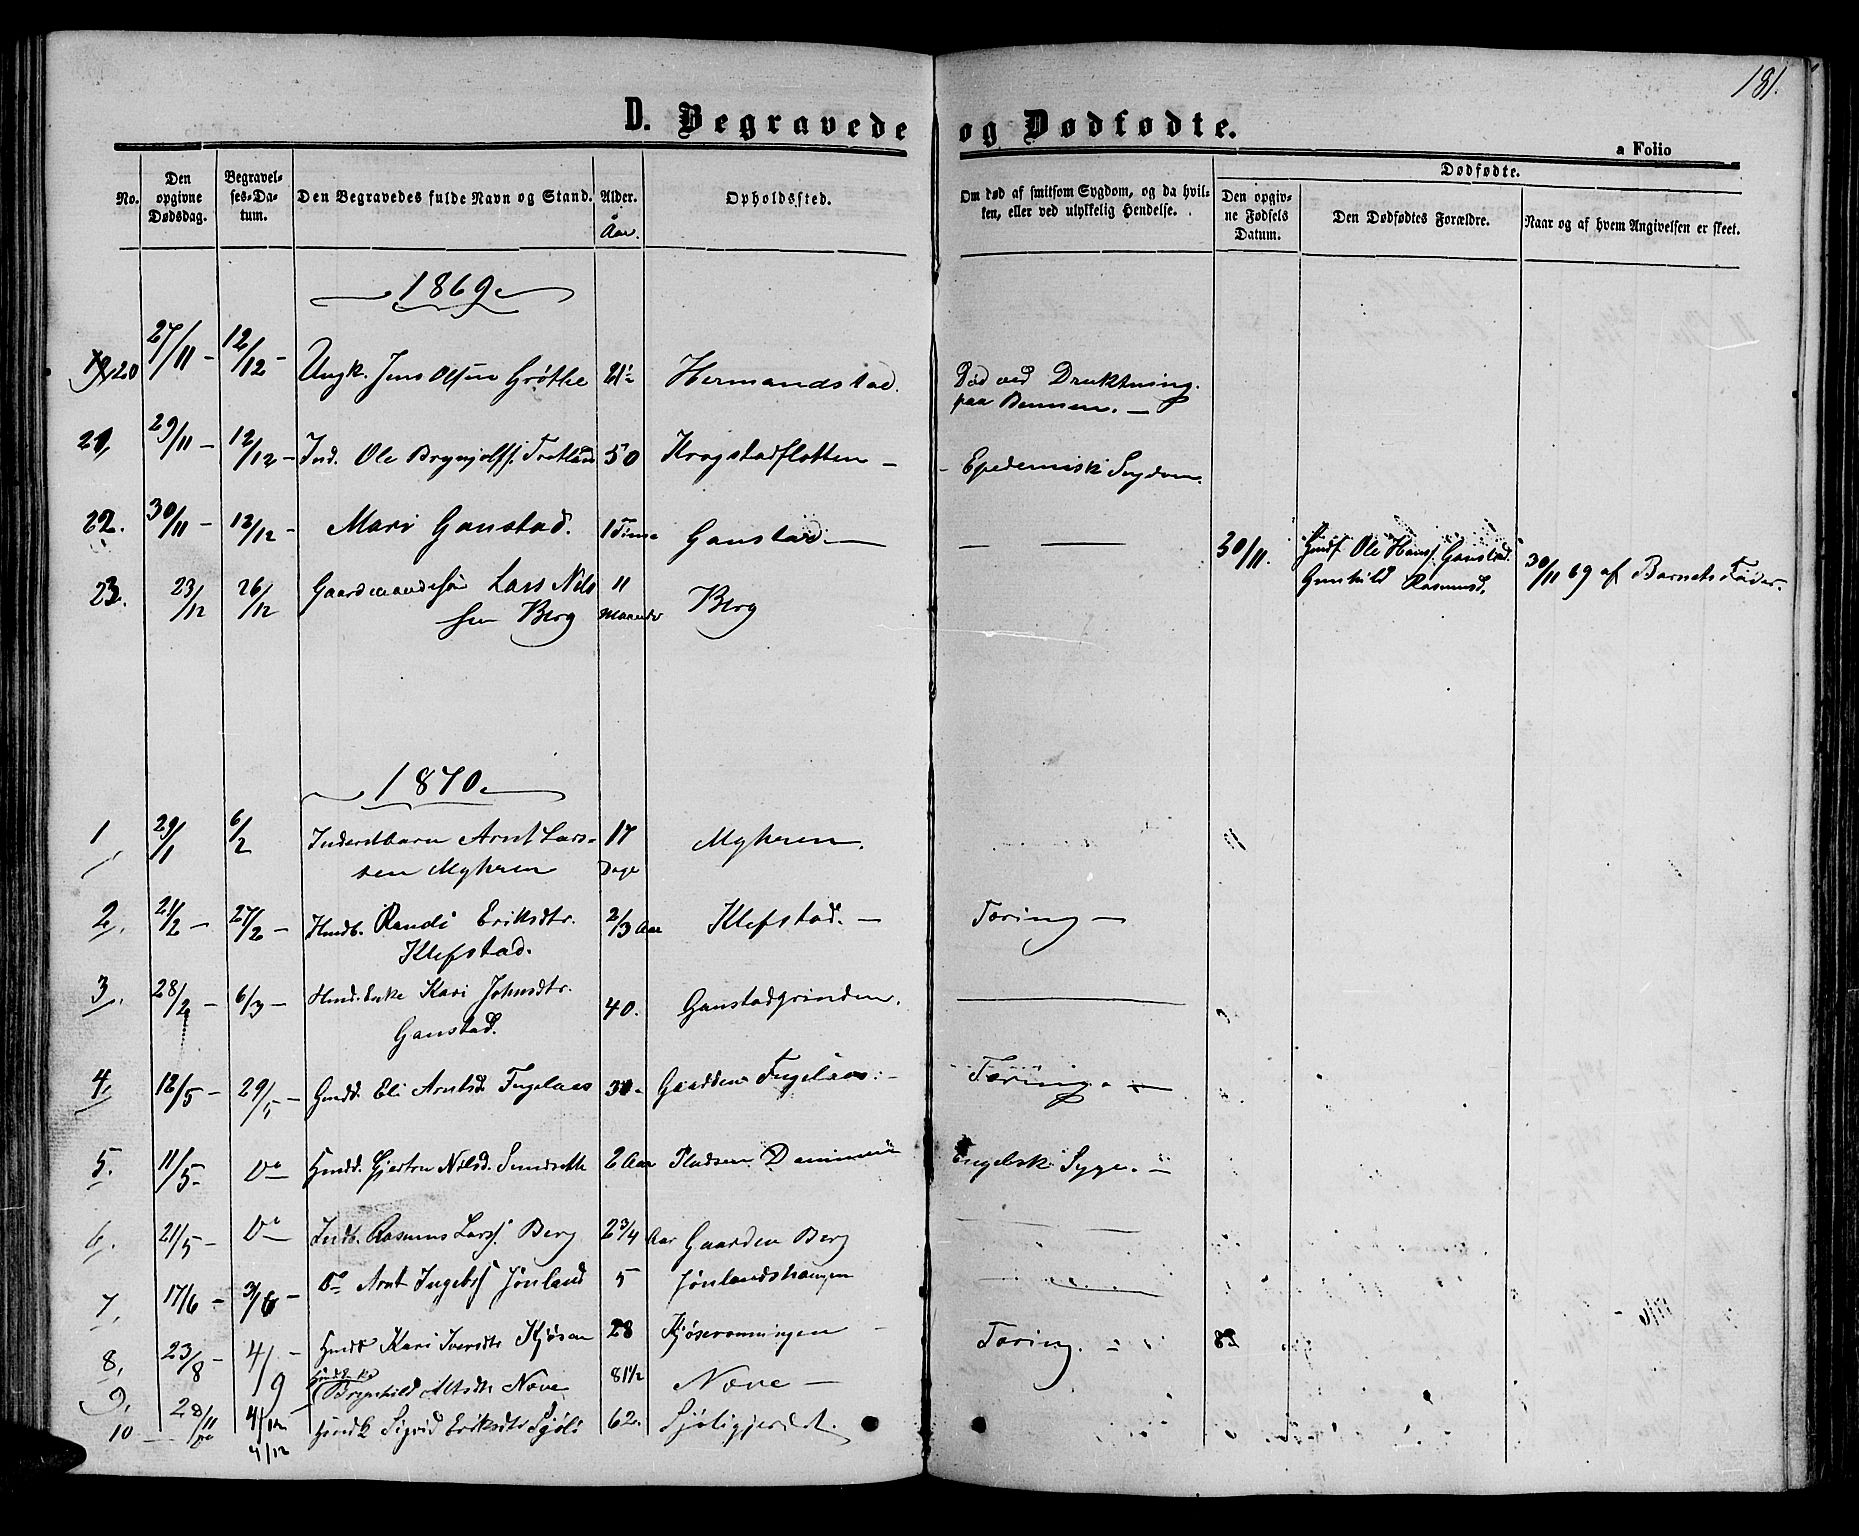 181.
D. Begravede og Dødfødte.
a Folio
No.
Den opgivne Dødsdag.
Begravelses-Datum.
Den Begravedes fulde Navn og Stand.
Alder.
Aar.
Opholdssted.
Om død af smitsom Sygdom, og da hvilken, eller ved ulykkelig Hendelse.
Dødfødte.
Den opgivne Fødsels Datum.
Den Dødfødtes Forældre.
Naar og af hvem Angivelsen er skeet.
1869
20 27/11 - 12/12 - Ungk. Jens Olsen Grøtlie 21½ Hermandstad. Død ved Druktning
paa Bennen. -
21, 29/11 - 12/12 - Ind. Ole Brynjolfs. Trotland 50 Krogstadflotten - Epedemisk Sygdom.
22. 30/11 - 12/12 - Mari Gonstad. 1 Time Gonstad. - 30/11. Ole Hanss. Gonstad. 30/11 69 af Barnets Fader.
Gunhild Rasmusd.
23. 23/12 26/12 Gaardmandssøn Lars Nils 11 Berg
sen Berg Maaneder
1870
1 29/1 6/2 Inderstbarn Arnt Lars= 17 Myhren.
sen Myhren Dage
2. 21/2 - 27/2 - Husdb. Randi Eriksdtr. 2/3 Aar Klefstad. - Tæring -
Klefstad.
3. 28/2 - 6/3 - Husd. Enke Kari Johnsdtr. 40. Gonstadgrinden.
Gonstad.
4, 12/5 - 29/5 - Eli Arntsd. Fugelaas Gaarden Fugelaas: - Tæring. -
5. 11/5- Do Nilsd. 2 Aar Pladsen Engelsk Syge. -
6. 21/5 - Do Indb. Rasmus Larss. Berg 2¾ Aar Gaarden Berg
7, 17/6 - Do Arnt Ingebr. Jønland 5 Jønlandshaugen
8, 23/8 - 4/9 Kari Iversdtr Kjøsen 28 Kjøserønningen - Tæring.
9, Brynhild Næve 81½ Næve -
10 4/12 Sigrid Eriksdtr Sjøli 62. Sjøligjerdet.
4/12